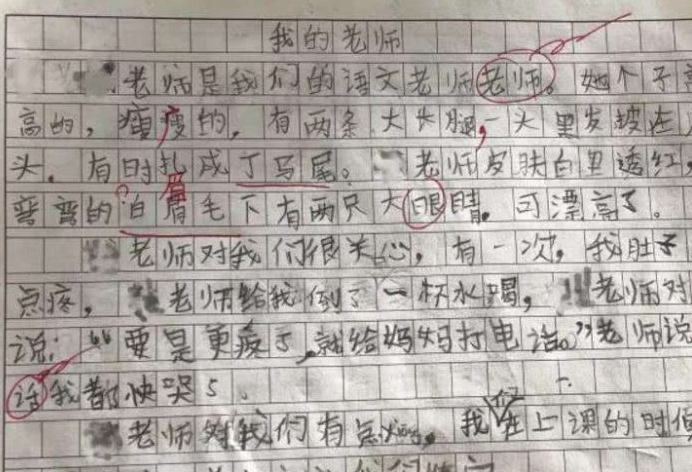 我的老师
老师是我们的语文老师老师。她个子
高的，瘦瘦的，有两条大长腿，一头黑发披在
头。有时扎成丁马尾。老师皮肤白里透红，
弯弯的白眉毛下有两只大眼睛。可漂亮了。
眉
老师对我们很关心，有一次，我肚子
点疼，老师给我倒了一杯水喝，老师对
说：“要是更疼了，就给妈妈打电话。”老师说
话我都快哭了。
老师对我们有点，我们在上课的时候